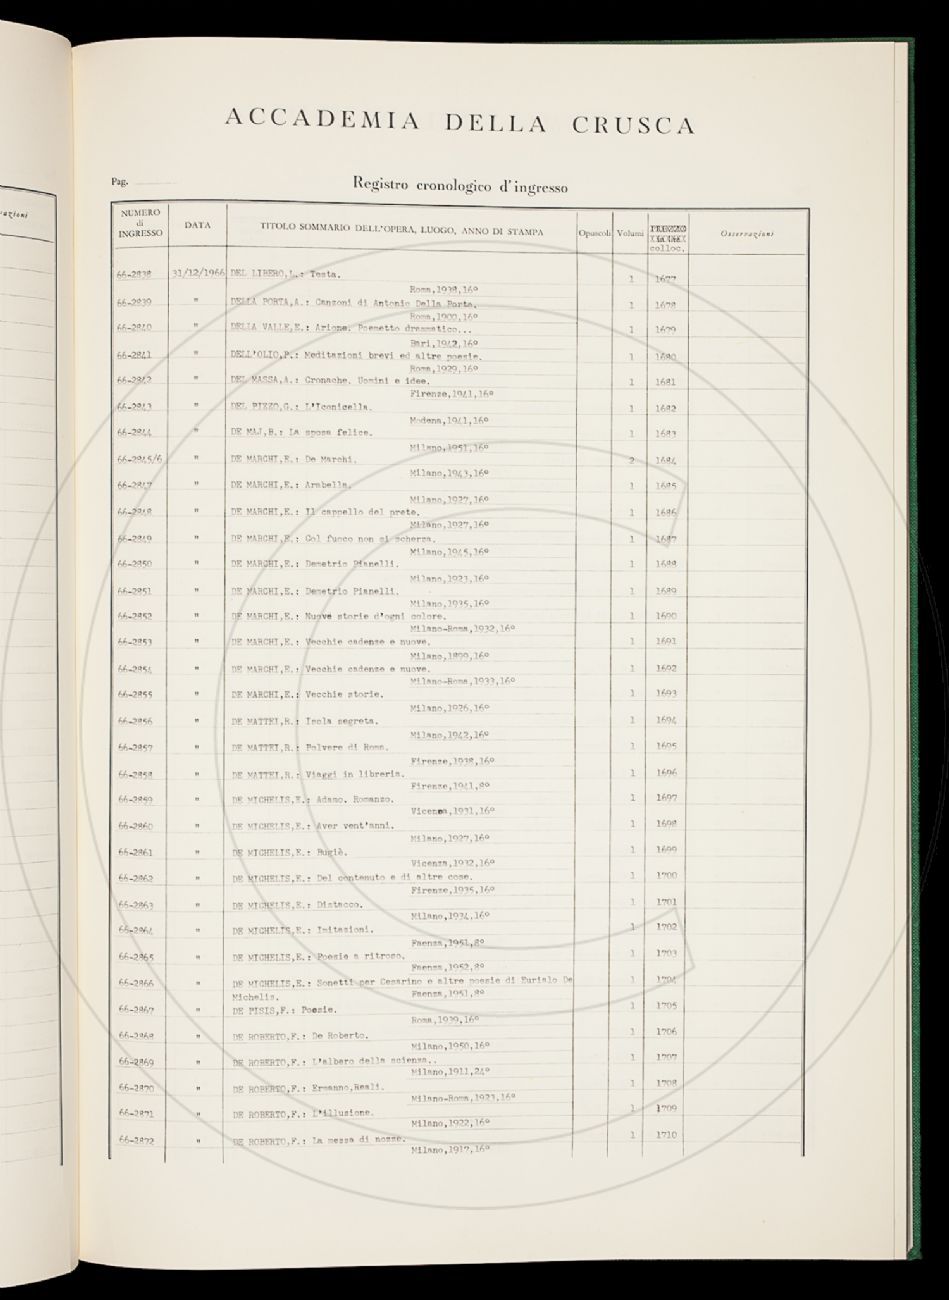 azioni
ACCADEMIA DELLA CRUSCA
Pag.
Registro cronologico d'ingresso
NUMERO di INGRESSO DATA TITOLO SOMMARIO DELL'OPERA, LUOGO, ANNO DI STAMPA Opuscoli Volumi colloc. Osservazioni
66-2838 31/12/1966 DEL LIBERO,L.: Testa. 1 1677
Roma,1938,16º
66-2839 " DELLA PORTA,A.: Canzoni di Antonio Della Porta. 1 1678
Roma,1900,16º
66-2840 " DELLA VALLE,E.: Arione. Poemetto drammatico... 1 1679
Bari,1942,16º
66-2841 " DELL'OLIO,P.: Meditazioni brevi ed altre poesie. 1 1680
Roma,1929,16º
66-2842 " DEL MASSA,A.: Cronache. Uomini e idee. 1 1681
Firenze,1941,16º
66-2843 " DEL PIZZO,G.: L'Iconicella. 1 1682
Modena,1941,16º
66-2844 " DE MAJ,B.: La sposa felice. 1 1683
Milano,1951,16º
66-2845/6 " DE MARCHI,E.: De Marchi. 2 1684
Milano,1943,16º
66-2847 " DE MARCHI,E.: Arabella. 1 1685
Milano,1927,16º
66-2848 " DE MARCHI,E.: Il cappello del prete. 1 1686
Milano,1927,16º
66-2849 " DE MARCHI,E.: Col fuoco non si scherza. 1 1687
Milano,1945,16º
66-2850 " DE MARCHI,E.: Demetrio Pianelli. 1 1688
Milano,1923,16º
66-2851 " DE MARCHI,E.: Demetrio Pianelli. 1 1689
Milano,1935,16º
66-2852 " DE MARCHI,E.: Nuove storie d'ogni colore. 1 1690
Milano-Roma,1932,16º
66-2853 " DE MARCHI,E.: Vecchie cadenze e nuove. 1 1691
Milano,1899,16º
66-2854 " DE MARCHI,E.: Vecchie cadenze e nuove. 1 1692
Milano-Roma,1933,16º
66-2855 " DE MARCHI,E.: Vecchie storie. 1 1693
Milano,1926,16º
66-2856 " DE MATTEI,R.: Isola segreta. 1 1694
Milano,1942,16º
66-2857 " DE MATTEI,R.: Polvere di Roma. 1 1695
Firenze,1938,16º
66-2858 " DE MATTEI,R.: Viaggi in libreria. 1 1696
Firenze,1941,8º
66-2859 " DE MICHELIS,E.: Adamo. Romanzo. 1 1697
Vicenza,1931,16º
66-2860 " DE MICHELIS,E.: Aver vent'anni. 1 1698
Milano,1927,16º
66-2861 " DE MICHELIS,E.: Bugiè. 1 1699
Vicenza,1932,16º
66-2862 " DE MICHELIS,E.: Del contenuto e di altre cose. 1 1700
Firenze,1935,16º
66-2863 " DE MICHELIS,E.: Distacco. 1 1701
Milano,1934,16º
66-2864 " DE MICHELIS,E.: Imitazioni. 1 1702
Faenza,1951,8º
66-2865 " DE MICHELIS,E.: Poesie a ritroso. 1 1703
Faenza,1952,8º
66-2866 " DE MICHELIS,E.: Sonetti per Cesarino e altre poesie di Eurialo De 1 1704
Michelis. Faenza,1951,8º
66-2867 " DE PISIS,F.: Poesie. 1 1705
Roma,1939,16º
66-2868 " DE ROBERTO,F.: De Roberto. 1 1706
Milano,1950,16º
66-2869 " DE ROBERTO,F.: L'albero della scienza.. 1 1707
Milano,1911,24º
66-2870 " DE ROBERTO,F.: Ermanno,Raeli. 1 1708
Milano-Roma,1923,16º
66-2871 " DE ROBERTO,F.: L'illusione. 1 1709
Milano,1922,16º
66-2872 " DE ROBERTO,F.: La messa di nozze. 1 1710
Milano,1917,16º